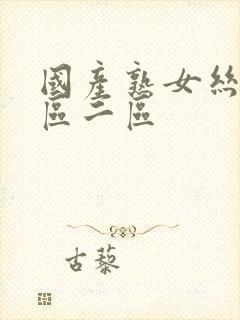 國產熟女絲
區二區
古藜